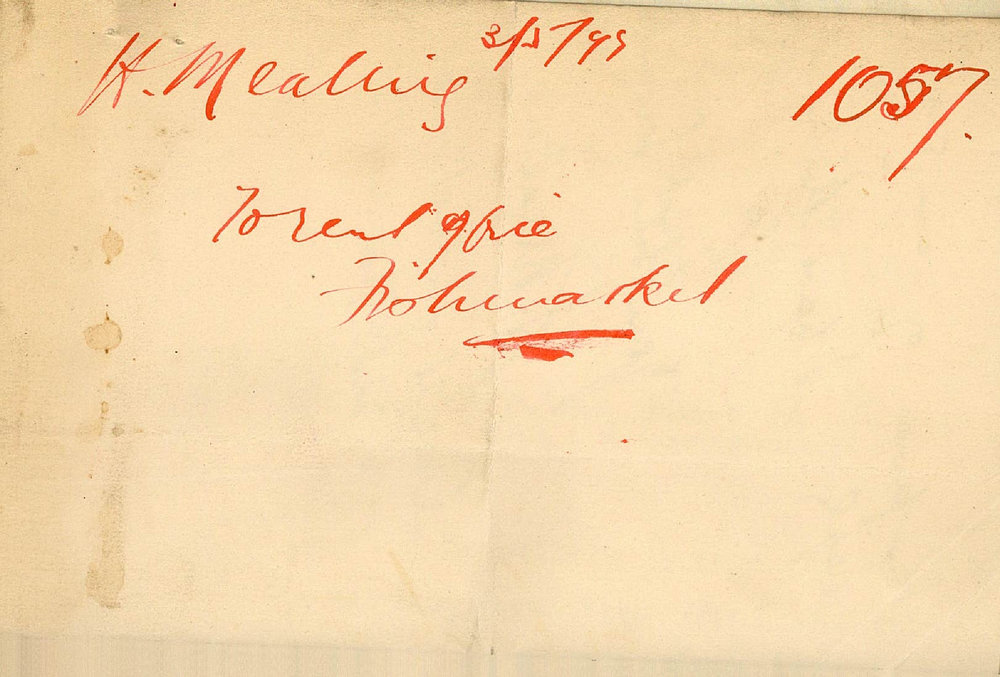 H. Mealling 3/5/99
1057.
To rent office
Fishmarket